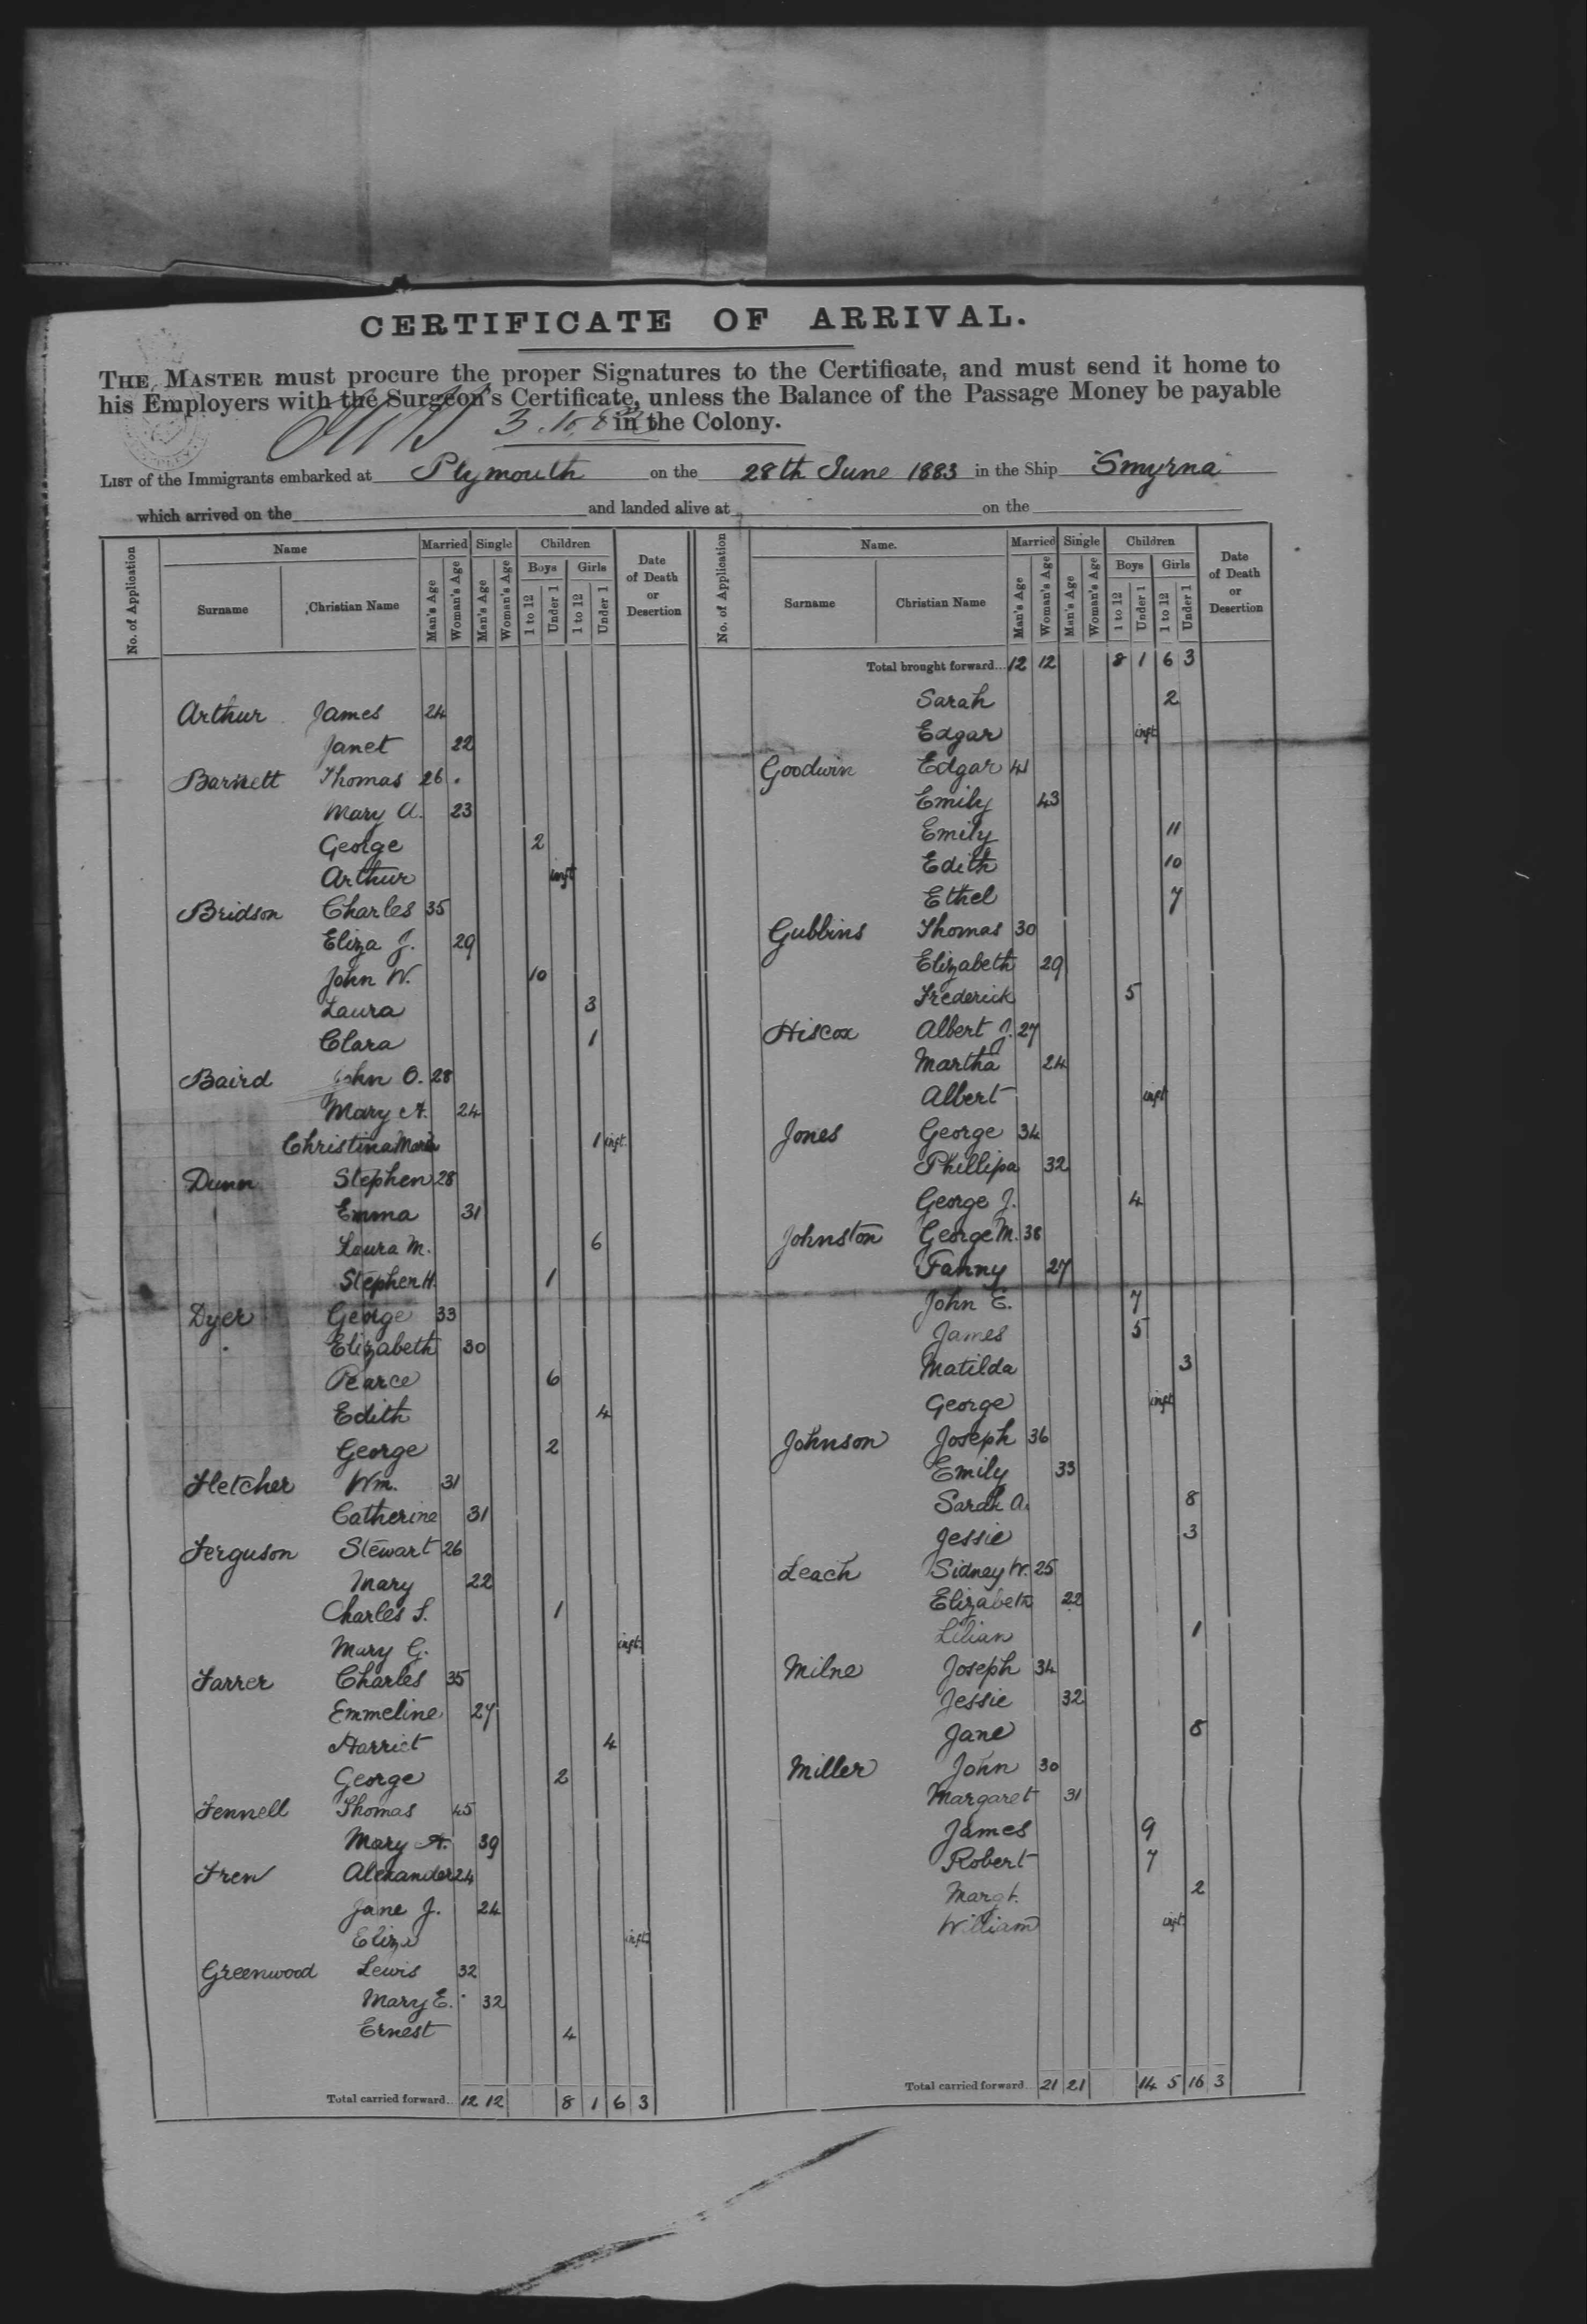 CERTIFICATE OF ARRIVAL.
THE MASTER must procure the proper Signatures to the Certificate, and must send it home to
his Employers with the Surgeon's Certificate, unless the Balance of the Passage Money be payable
in the Colony.
LIST of the Immigrants embarked at Plymouth on the 28th June 1883 in the Ship "Smyrna"
which arrived on the and landed alive at on the
No. of Application
Name
Surname
Christian Name
Married
Man's Age
Woman's Age
Single
Man's Age
Woman's Age
Children
Boys
1 to 12
Under 1
Girls
1 to 12
Under 1
Date of Death or Desertion
Arthur James 24
Janet 22
Barnett Thomas 26
Mary A. 23
George 2
Arthur inft
Bridson Charles 35
Eliza J. 29
John W. 10
Laura 3
Clara 1
Baird John O. 28
Mary A. 24
Christina Maria 1 inft.
Dunn Stephen 28
Emma 31
Laura M. 6
Stephen H. 1
Dyer George 33
Elizabeth 30
Pearce 6
Edith 4
George 2
Fletcher Wm. 31
Catherine 31
Ferguson Stewart 26
Mary 22
Charles S. 1
Mary G. inft.
Farrer Charles 35
Emmeline 27
Harriet 4
George 2
Fennell Thomas 45
Mary A. 39
Frew Alexander 24
Jane J. 24
Eliza inft.
Greenwood Lewis 32
Mary E. 32
Ernest 4
Total carried forward.. 12 12 8 1 6 3
No. of Application
Name.
Surname
Christian Name
Married
Man's Age
Woman's Age
Single
Man's Age
Woman's Age
Children
Boys
1 to 12
Under 1
Girls
1 to 12
Under 1
Date of Death or Desertion
Total brought forward... 12 12 8 1 6 3
Sarah 2
Edgar inft
Goodwin Edgar 41
Emily 43
Emily 11
Edith 10
Ethel 7
Gubbins Thomas 30
Elizabeth 29
Frederick 5
Hiscox Albert J. 27
Martha 24
Albert inft
Jones George 34
Phillipa 32
George J. 4
Johnston George M. 38
Fanny 27
John E. 7
James 5
Matilda 3
George inft
Johnson Joseph 36
Emily 33
Sarah A. 8
Jessie 3
Leach Sidney W. 25
Elizabeth 22
Lilian 1
Milne Joseph 34
Jessie 32
Jane 8
Miller John 30
Margaret 31
James 9
Robert 7
Margt. 2
William inft.
Total carried forward... 21 21 14 5 16 3